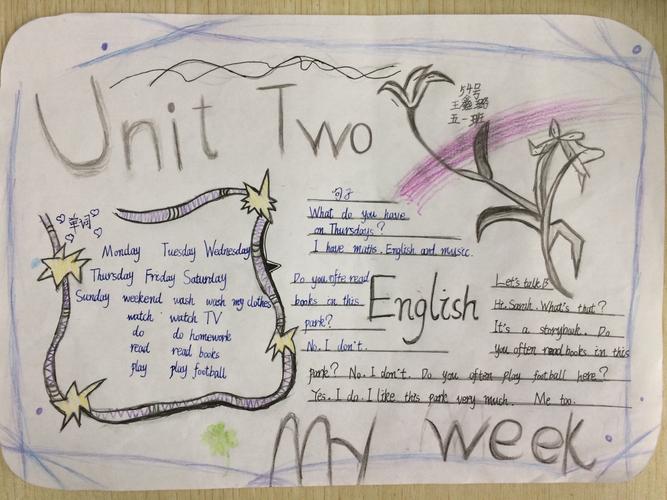 Unit Two
54号
王
五一班
单词
Monday Tuesday Wednesday
Thursday Friday Saturday
Sunday weekend wash wash my clothes
watch watch TV
do do homework
read read books
play play football
句子
What do you have
on Thursdays?
I have maths. English and music.
Do you ofte read
books in this
park?
No. I don't.
English
Let's talk B
Hi. Sarah. What's that?
It's a storybook. Do
you often read books in this
park? No. I don't. Do you often play football here?
Yes. I do. I like this park very much. Me too.
My week